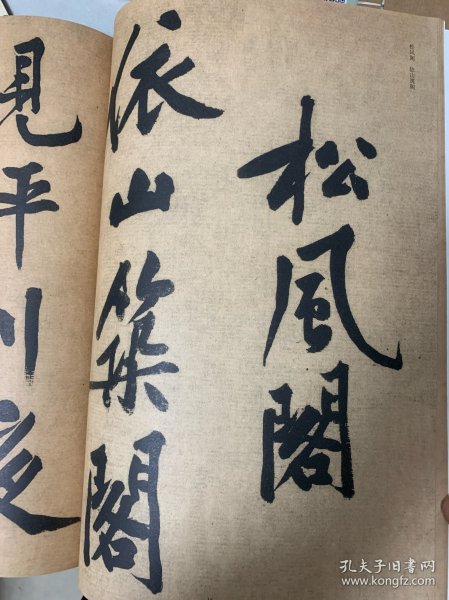 松風阁 依山筑阁
松風閣
依山築閣
見平川夜
孔夫子旧书网
www.kongfz.com